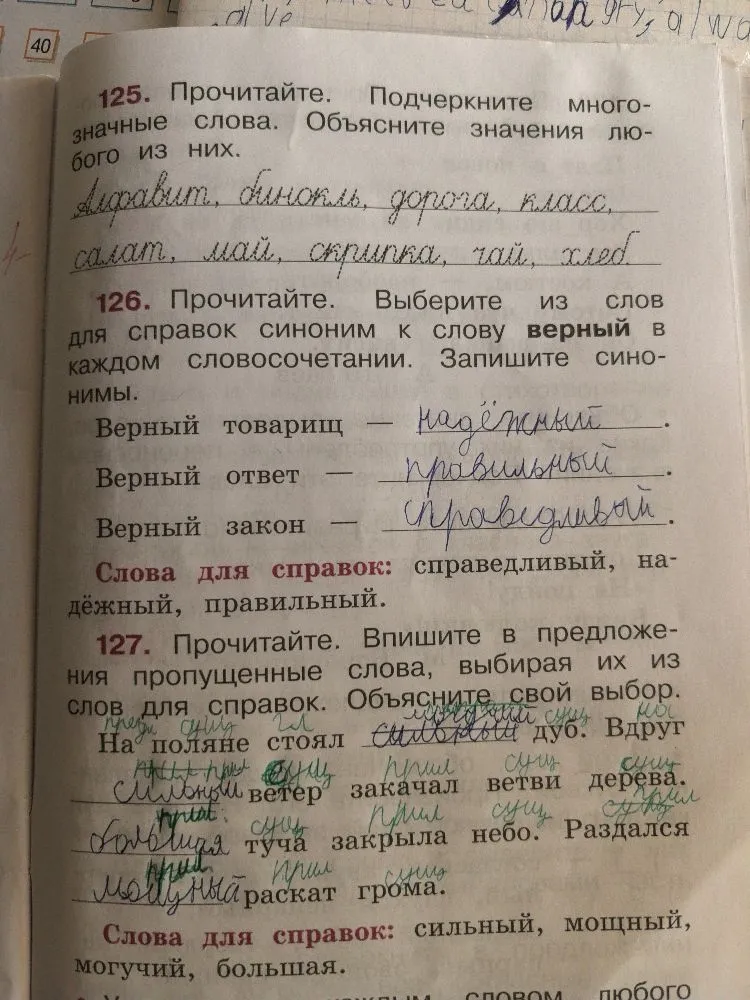 40
125. Прочитайте. Подчеркните много-
значные слова. Объясните значения лю-
бого из них.
Алфавит, бинокль, дорога, класс,
салат, май, скрипка, чай, хлеб.
126. Прочитайте. Выберите из слов
для справок синоним к слову верный в
каждом словосочетании. Запишите сино-
нимы.
Верный товарищ — надёжный.
Верный ответ — правильный.
Верный закон — справедливый.
Слова для справок: справедливый, на-
дёжный, правильный.
127. Прочитайте. Впишите в предложе-
ния пропущенные слова, выбирая их из
слов для справок. Объясните свой выбор.
предл сущ гл сущ на
На поляне стоял сильный дуб. Вдруг
прил прил сущ прил сущ сущ
сильный ветер закачал ветви дерева.
прил. сущ прил сущ сущ прил
большая туча закрыла небо. Раздался
прил прил сущ
мощный раскат грома.
Слова для справок: сильный, мощный,
могучий, большая.
каждым словом любого